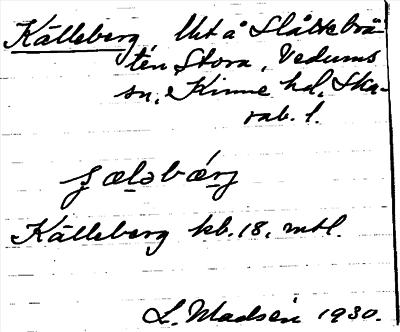 Källeberg Utt å Slåttebrå-
ten Stora, Vedums
sn, Kinne hd, Ska-
rab. l.
Källeberg kb. 18. mtl.
L. Madsén 1930.